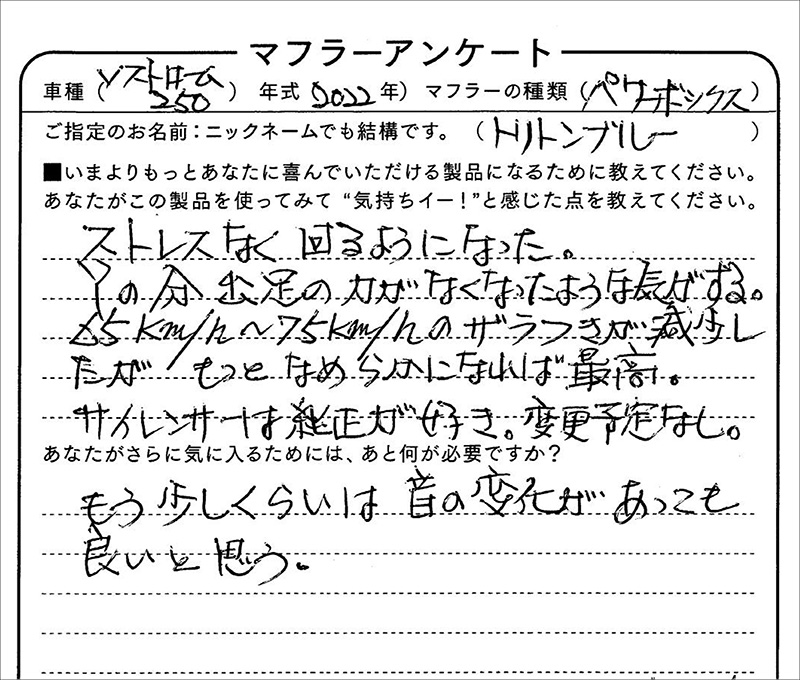 マフラーアンケート
車種(Vストローム250) 年式(2022年) マフラーの種類(パワーボックス)
ご指定のお名前:ニックネームでも結構です。 (トリトンブルー)
■いまよりもっとあなたに喜んでいただける製品になるために教えてください。
あなたがこの製品を使ってみて “気持ちイー!”と感じた点を教えてください。
ストレスなく 回るようになった。
その分 出足の力がなくなったような気がする。
65km/h~75km/hのザラつきが減少し
たが もっと なめらかになれば 最高。
サイレンサーは純正が好き。変更予定なし。
あなたがさらに気に入るためには、あと何が必要ですか?
もう少しくらいは 音の変化が あっても
良いと思う。